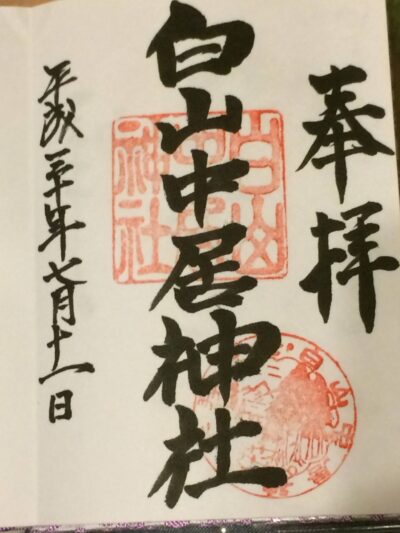 奉拝
白山中居神社
平成二十年七月十一日
白山
中居
神社